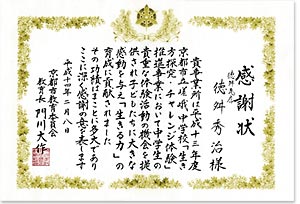 感謝状
徳舛瓦店
徳舛秀治様
貴事業所は平成十三年度
京都市立嵯峨中学校「生き
方探究・チャレンジ体験」
推進事業において中学生の
貴重な体験活動の機会を提
供され子どもたちに大きな
感動を与え「生きる力」の
育成に貢献されました
その功績はまことに多大であり
ここに深く感謝の意を表します
平成十四年二月八日
京都市教育委員会
教育長 門川大作